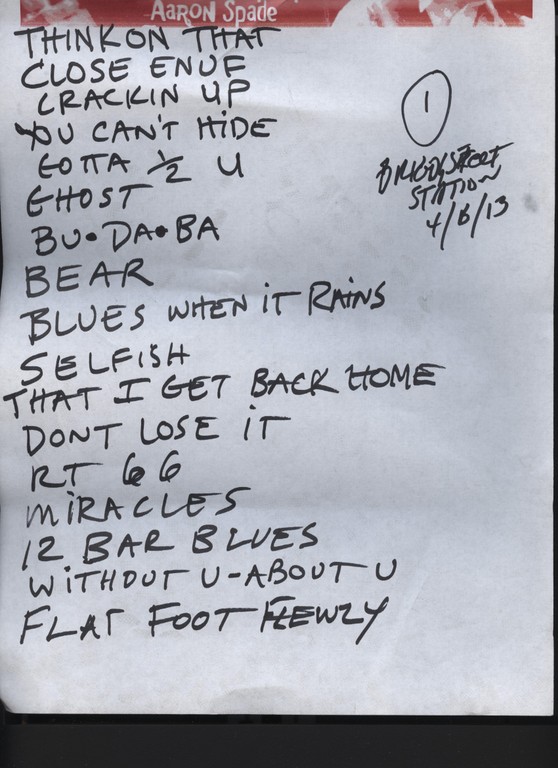 AARON Spade
THINK ON THAT
CLOSE ENUF
CRACKIN UP
YOU CAN'T HIDE
GOTTA 1/2 U
GHOST
BU•DA•BA
BEAR
BLUES WHEN IT RAINS
SELFISH
THAT I GET BACK HOME
DONT LOSE IT
RT 66
MIRACLES
12 BAR BLUES
WITHOUT U-ABOUT U
FLAT FOOT FLEWZY
1
STATION